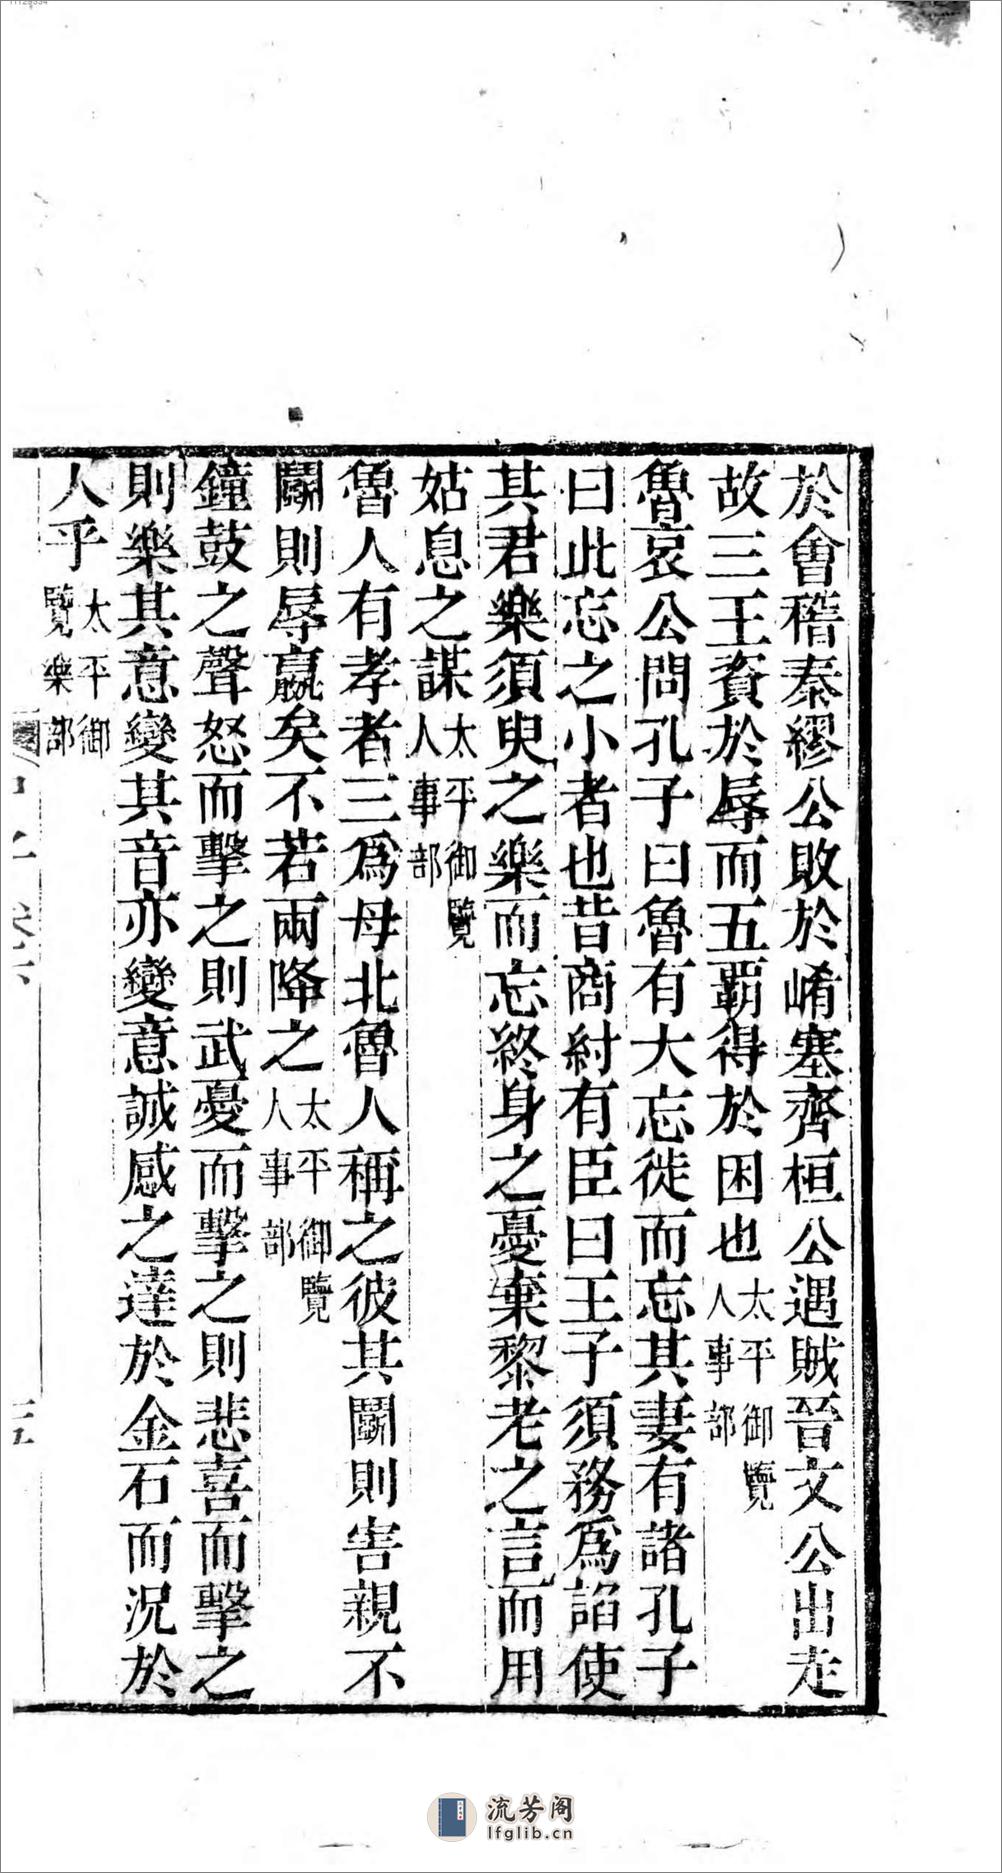 11129334
於會稽秦繆公敗於崤塞齊桓公遇賊晉文公出走
故三王資於辱而五霸得於困也太平御覽人事部
魯哀公問孔子曰魯有大忘徙而忘其妻有諸孔子
曰此忘之小者也昔商紂有臣曰王子須務爲諂使
其君樂須臾之樂而忘終身之憂棄黎老之言而用
姑息之謀太平御覽人事部
魯人有孝者三爲母北魯人稱之彼其鬭則害親不
鬭則辱嬴矣不若兩降之太平御覽人事部
鐘鼓之聲怒而擊之則武憂而擊之則悲喜而擊之
則樂其意變其音亦變意誠感之達於金石而況於
人乎太平御覽樂部
流芳阁
lfglib.cn